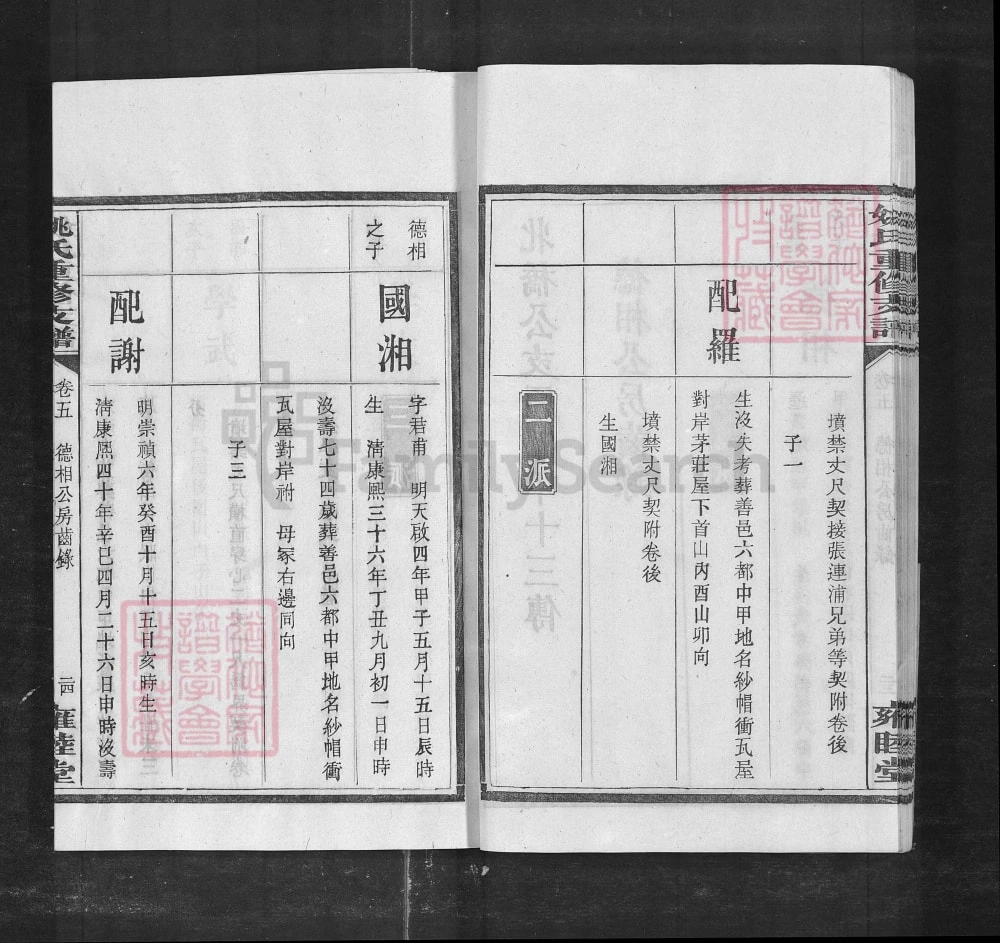 墳禁丈尺契接張連浦兄弟等契附卷後
子一
配羅
生沒失考葬善邑六都中甲地名紗帽衝瓦屋
對岸茅莊屋下首山內酉山卯向
墳禁丈尺契附卷後
生國湘
二派
德相
之子
國湘
字君甫 明天啟四年甲子五月十五日辰時
生 清康熙三十六年丁丑九月初一日申時
沒壽七十四歲葬善邑六都中甲地名紗帽衝
瓦屋對岸祔 母冢右邊同向
子三
配謝
明崇禎六年癸酉十月十五日亥時生
清康熙四十年辛巳四月二十六日申時沒壽
姚氏重修支譜
卷五 德相公房齒錄
二四
雍睦堂
FamilySearch